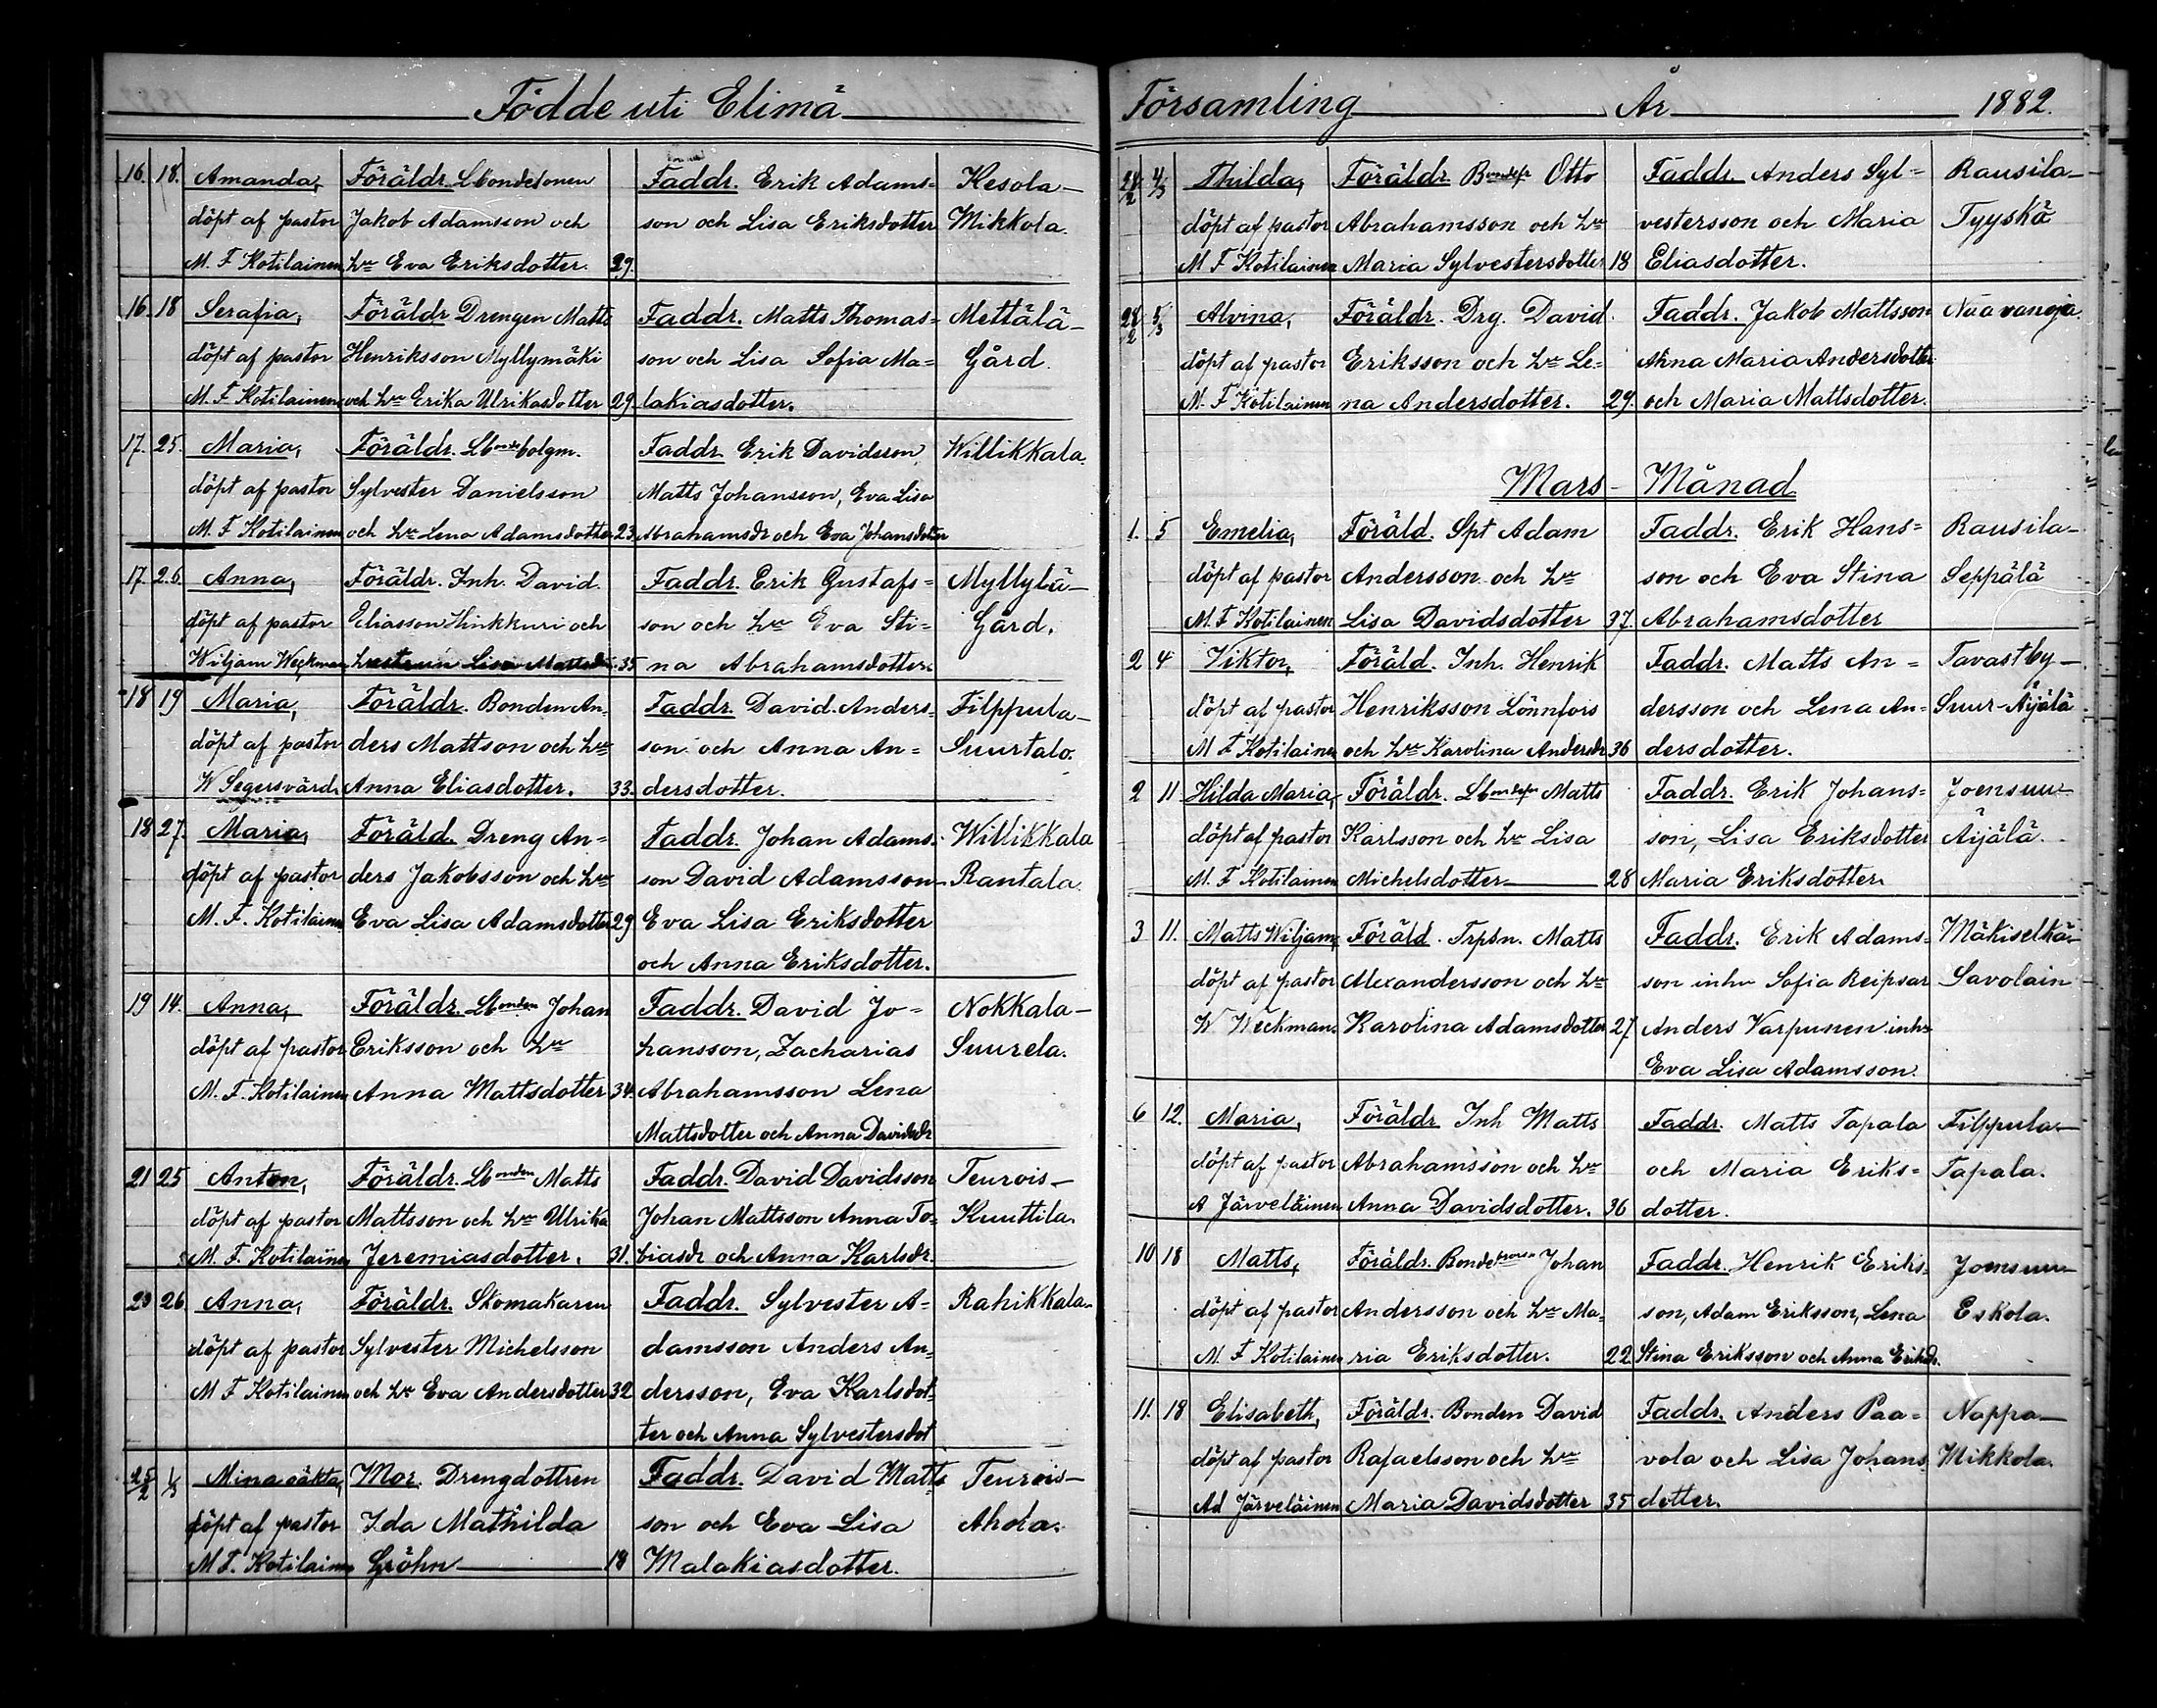 Födde uti Elimä
16. 18. Amanda, Föräldr. Lbondesonen Faddr. Erik Adams= Kesola-
döpt af pastor Jakob Adamsson och son och Lisa Eriksdotter Mikkola.
M. F Kotilainen hu Eva Eriksdotter. 29.
16. 18 Serafia, Föräldr Drengen Matts Faddr. Matts Thomas= Mettälä-
döpt af pastor Henriksson Myllymäki son och Lisa Sofia Ma= Gård.
M. F. Kotilainen och hu Erika Ulrikasdotter 29. lakiasdotter.
17. 25. Maria, Föräldr. Lbonde bolgm. Faddr. Erik Davidsson Willikkala.
döpt af pastor Sylvester Danielsson Matts Johansson, Eva Lisa
M. F Kotilainen och hu Lena Adamsdotter 23. Abrahamsdr och Eva Johansdotter
17. 26. Anna, Föräldr. Inh. David. Faddr. Erik Gustafs= Myllylä-
döpt af pastor Eliasson Hinkkuri och son och hu Eva Sti= Gård.
Wiljam Weckman hustrun Lisa Mattsdr. 35 na Abrahamsdotter.
18 19 Maria, Föräldr. Bonden An- Faddr. David Anders= Filppula-
döpt af pastor ders Mattson och hu son och Anna An= Suurtalo.
W Segersvärd. Anna Eliasdotter. 33. dersdotter.
18 27. Maria, Föräld. Dreng An= Faddr. Johan Adams- Willikkala
döpt af pastor ders Jakobsson och hu son David Adamsson Rantala.
M. F. Kotilainen Eva Lisa Adamsdotter 29 Eva Lisa Eriksdotter
och Anna Eriksdotter.
19 14. Anna, Föräldr. Lbonden Johan Faddr. David Jo= Nokkala-
döpt af pastor Eriksson och hu hansson, Zacharias Suurela.
M. F. Kotilainen Anna Mattsdotter 34. Abrahamsson Lena
Mattsdotter och Anna Davidsdr
21 25 Anton, Föräldr. Lbonden Matts Faddr. David Davidsson Teurois-
döpt af pastor Mattsson och hu Ulrika Johan Mattsson Anna To= Kuuttila.
M. F. Kotilainen Jeremiasdotter. 31. biasdr och Anna Karlsdr.
23 26 Anna, Föräldr. Skomakaren Faddr. Sylvester A= Rahikkala.
döpt af pastor Sylvester Michelsson damsson Anders An=
M F Kotilainen och hu Eva Andersdotter 32 dersson, Eva Karlsdot=
ter och Anna Sylvestersdot
25/2 1/3 Mina oäkta, Mor. Drengdottren Faddr. David Matts Teurois-
döpt af pastor Ida Mathilda son och Eva Lisa Ahola.
M F. Kotilainen Gröhn 18 Malakiasdotter.
Församling År 1882.
28/2 4/3 Thilda, Föräldr Otto Faddr. Anders Syl= Rausila-
döpt af pastor Abrahamsson och hu vestersson och Maria Tyyskä
M F Kotilainen Maria Sylvestersdotter 18 Eliasdotter.
28/2 5/3 Alvina, Föräldr. Drg. David. Faddr. Jakob Mattsson Naavanoja.
döpt af pastor Eriksson och hu Le= Anna Maria Andersdotter
M. F Kotilainen na Andersdotter. 29. och Maria Mattsdotter.
Mars- Månad
1. 5 Emelia, Föräld. Spt Adam Faddr. Erik Hans= Rausila-
döpt af pastor Andersson och hu son och Eva Stina Seppälä
M. F Kotilainen Lisa Davidsdotter 37. Abrahamsdotter
2 4 Viktor, Föräld. Inh. Henrik Faddr. Matts An= Tavastby-
döpt af pastor Henriksson Lönnfors dersson och Lena An= Suur-Äijälä.
M F Kotilainen och hu Karolina Andersdr 36 dersdotter.
2 11 Hilda Maria, Föräldr. Matts Faddr. Erik Johans= Joensuu-
döpt af pastor Karlsson och hu Lisa son, Lisa Eriksdotter Äijälä.
M. F Kotilainen Michelsdotter 28 Maria Eriksdotter.
3 11. Matts Wiljam, Föräld. Trpsn. Matts Faddr. Erik Adams= Mäkiselkä-
döpt af pastor Alexandersson och hu son inhn Sofia Reipsar Savolain
W Weckman. Karolina Adamsdotter 27. Anders Varpunen inh
Eva Lisa Adamsson.
6 12. Maria, Föräldr. Inh Matts Faddr. Matts Tapala Filppula-
döpt af pastor Abrahamsson och hu och Maria Eriks= Tapala.
A Järveläinen Anna Davidsdotter. 36 dotter.
10 18 Matts, Föräldr. Bondesonen Johan Faddr. Henrik Eriks= Joensuu-
döpt af pastor Andersson och hu Ma= son, Adam Eriksson, Lena Eskola.
M. F Kotilainen ria Eriksdotter. 22 Stina Eriksson och Anna Eriksdr.
11. 18 Elisabeth, Föräldr. Bonden David Faddr. Anders Paa= Nappa-
döpt af pastor Rafaelsson och hu vola och Lisa Johans Mikkola.
Ad Järveläinen Maria Davidsdotter 35 dotter.